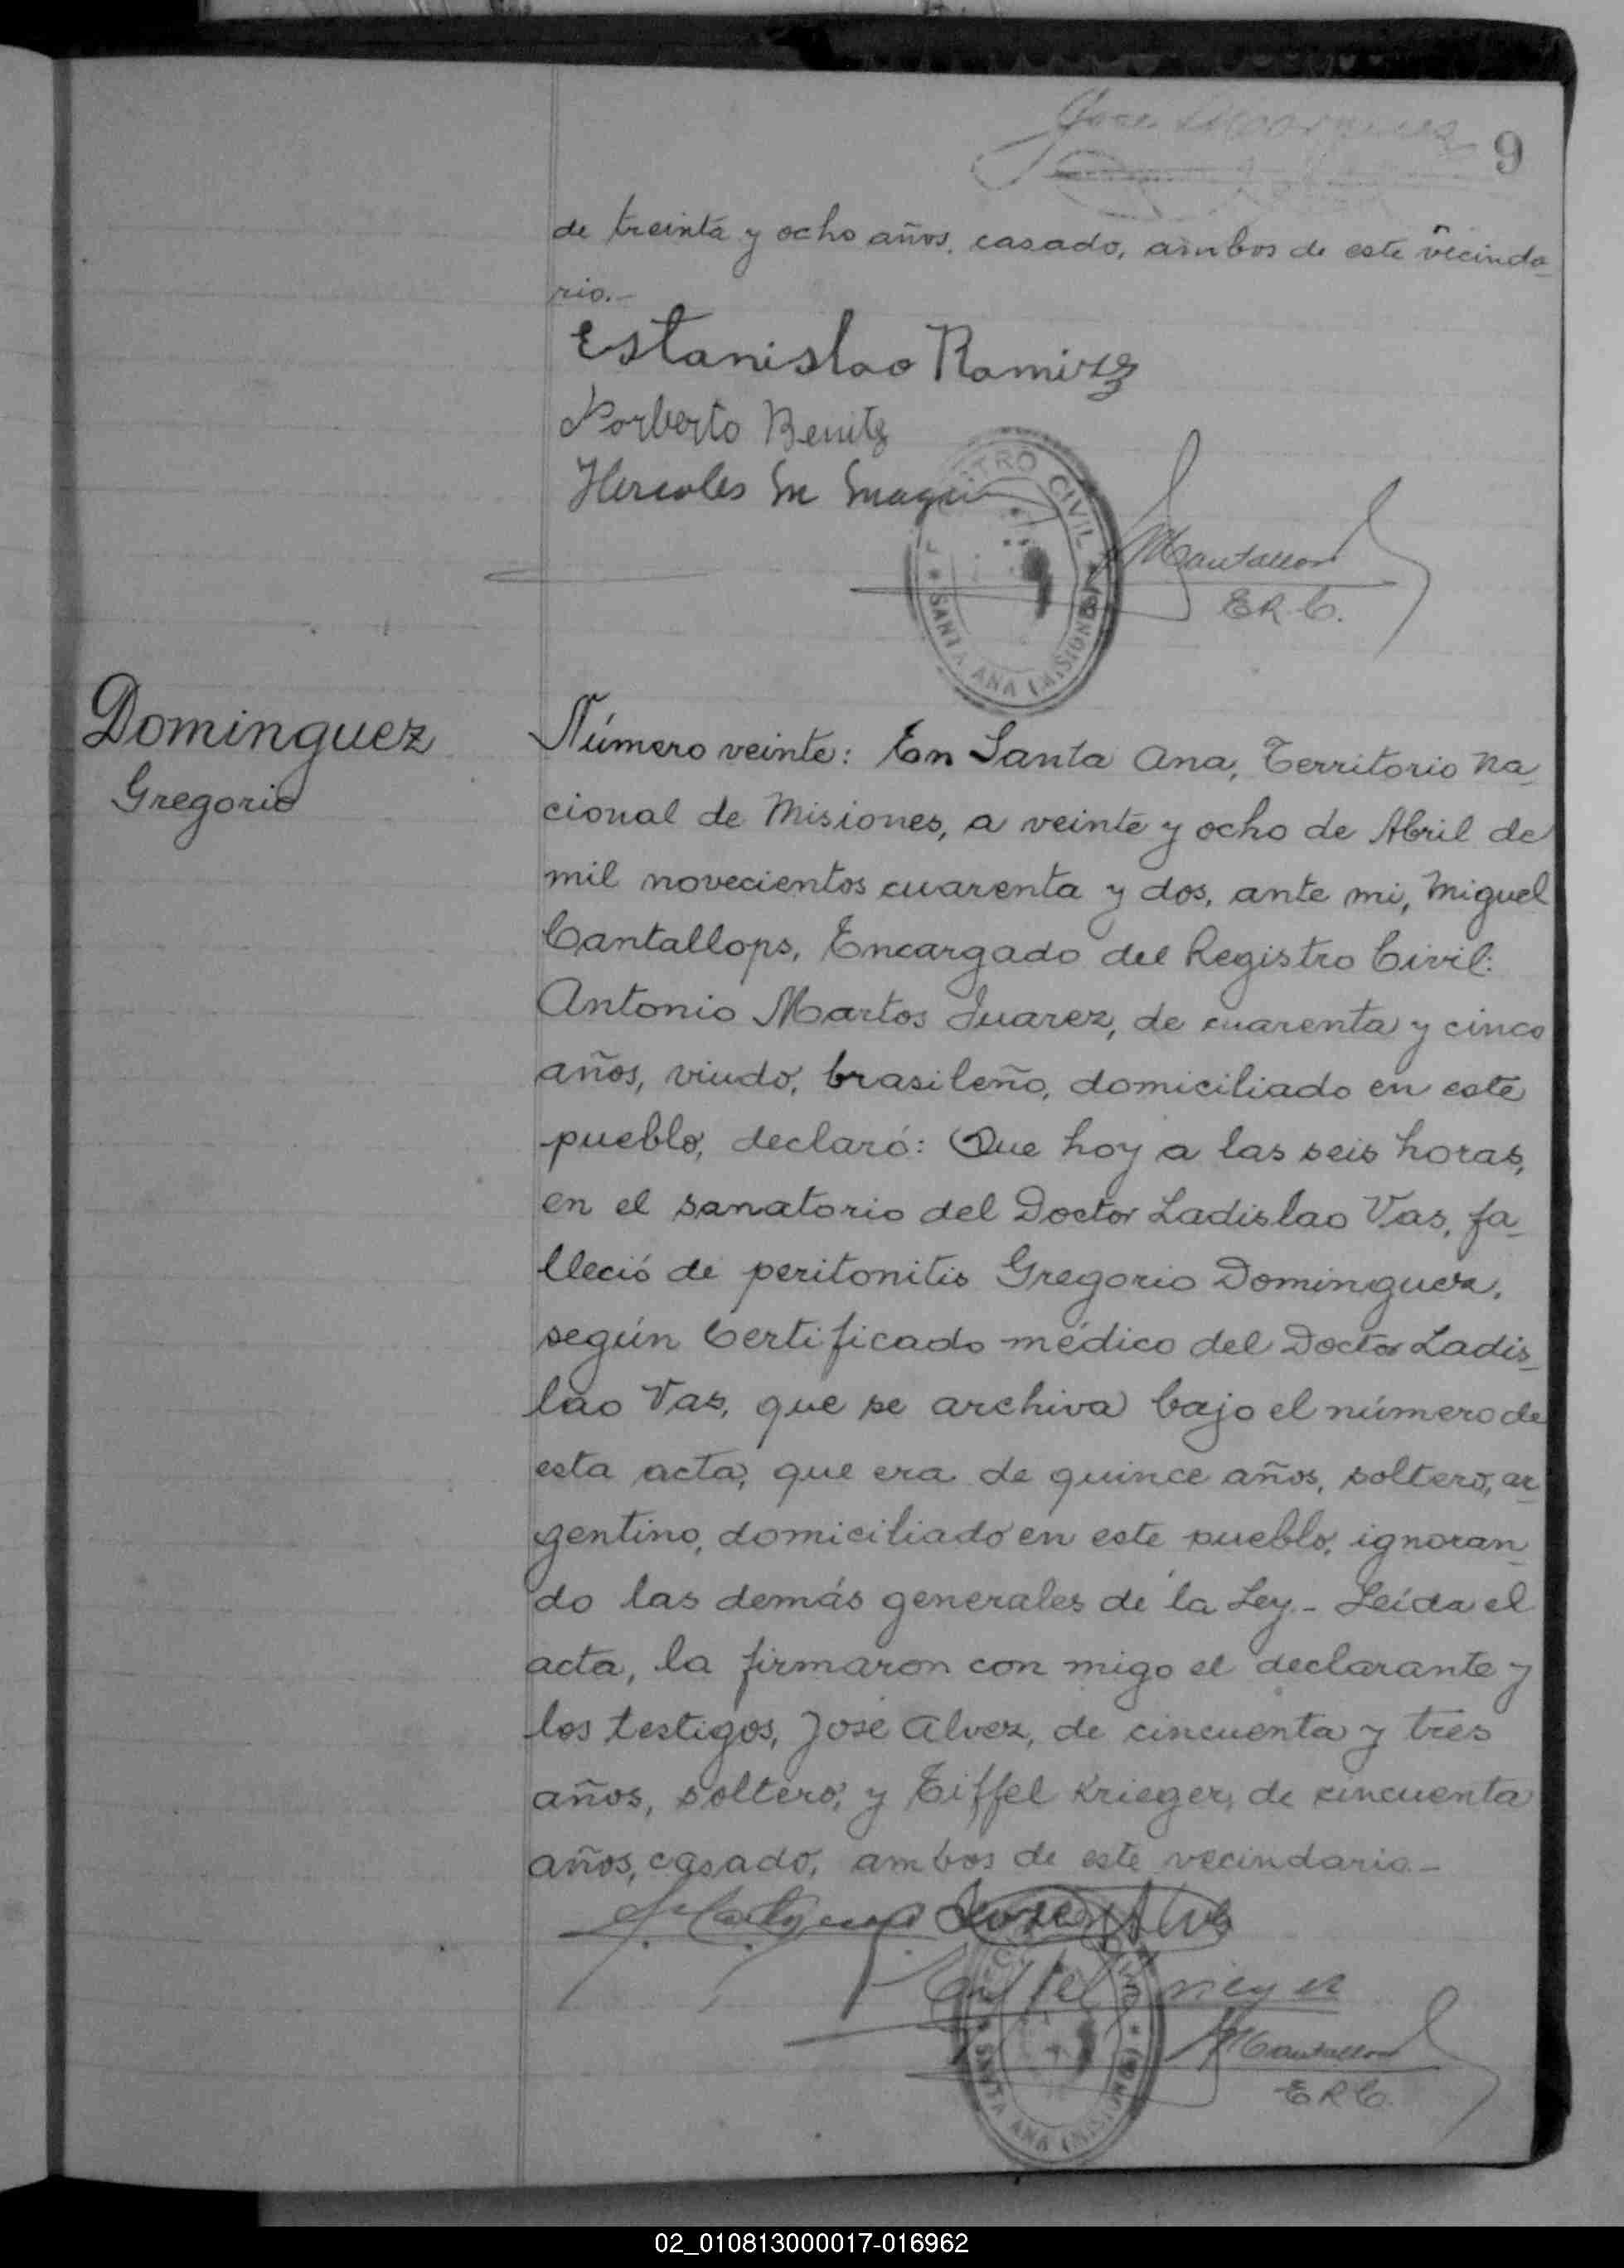 9
de treinta y ocho años, casado, ambos de este vecinda-
rio.-
Estanislao Ramirez
Norberto Benitz
Hercoles M
REGISTRO CIVIL
SANTA ANA (MISIONES)
MCantallops
E.R.C.
Dominguez
Gregorio
Número veinte: En Santa Ana, Territorio Na-
cional de Misiones, a veinte y ocho de Abril de
mil novecientos cuarenta y dos, ante mi, Miguel
Cantallops, Encargado del Registro Civil:
Antonio Martos Suarez, de cuarenta y cinco
años, viudo, brasileño, domiciliado en este
pueblo, declaró: Que hoy a las seis horas,
en el sanatorio del Doctor Ladislao Vas, fa-
lleció de peritonitis Gregorio Dominguez,
según Certificado médico del Doctor Ladis-
lao Vas, que se archiva bajo el número de
esta acta, que era de quince años, soltero, ar-
gentino, domiciliado en este pueblo, ignoran-
do las demás generales de la Ley.- Leída el
acta, la firmaron con migo el declarante y
los testigos, José Alvez, de cincuenta y tres
años, soltero, y Eiffel Krieger, de cincuenta
años, casado, ambos de este vecindario.-
Jose Alves
Eiffel Krieger
SANTA ANA (MISIONES)
MCantallops
E.R.C.
02_010813000017-016962